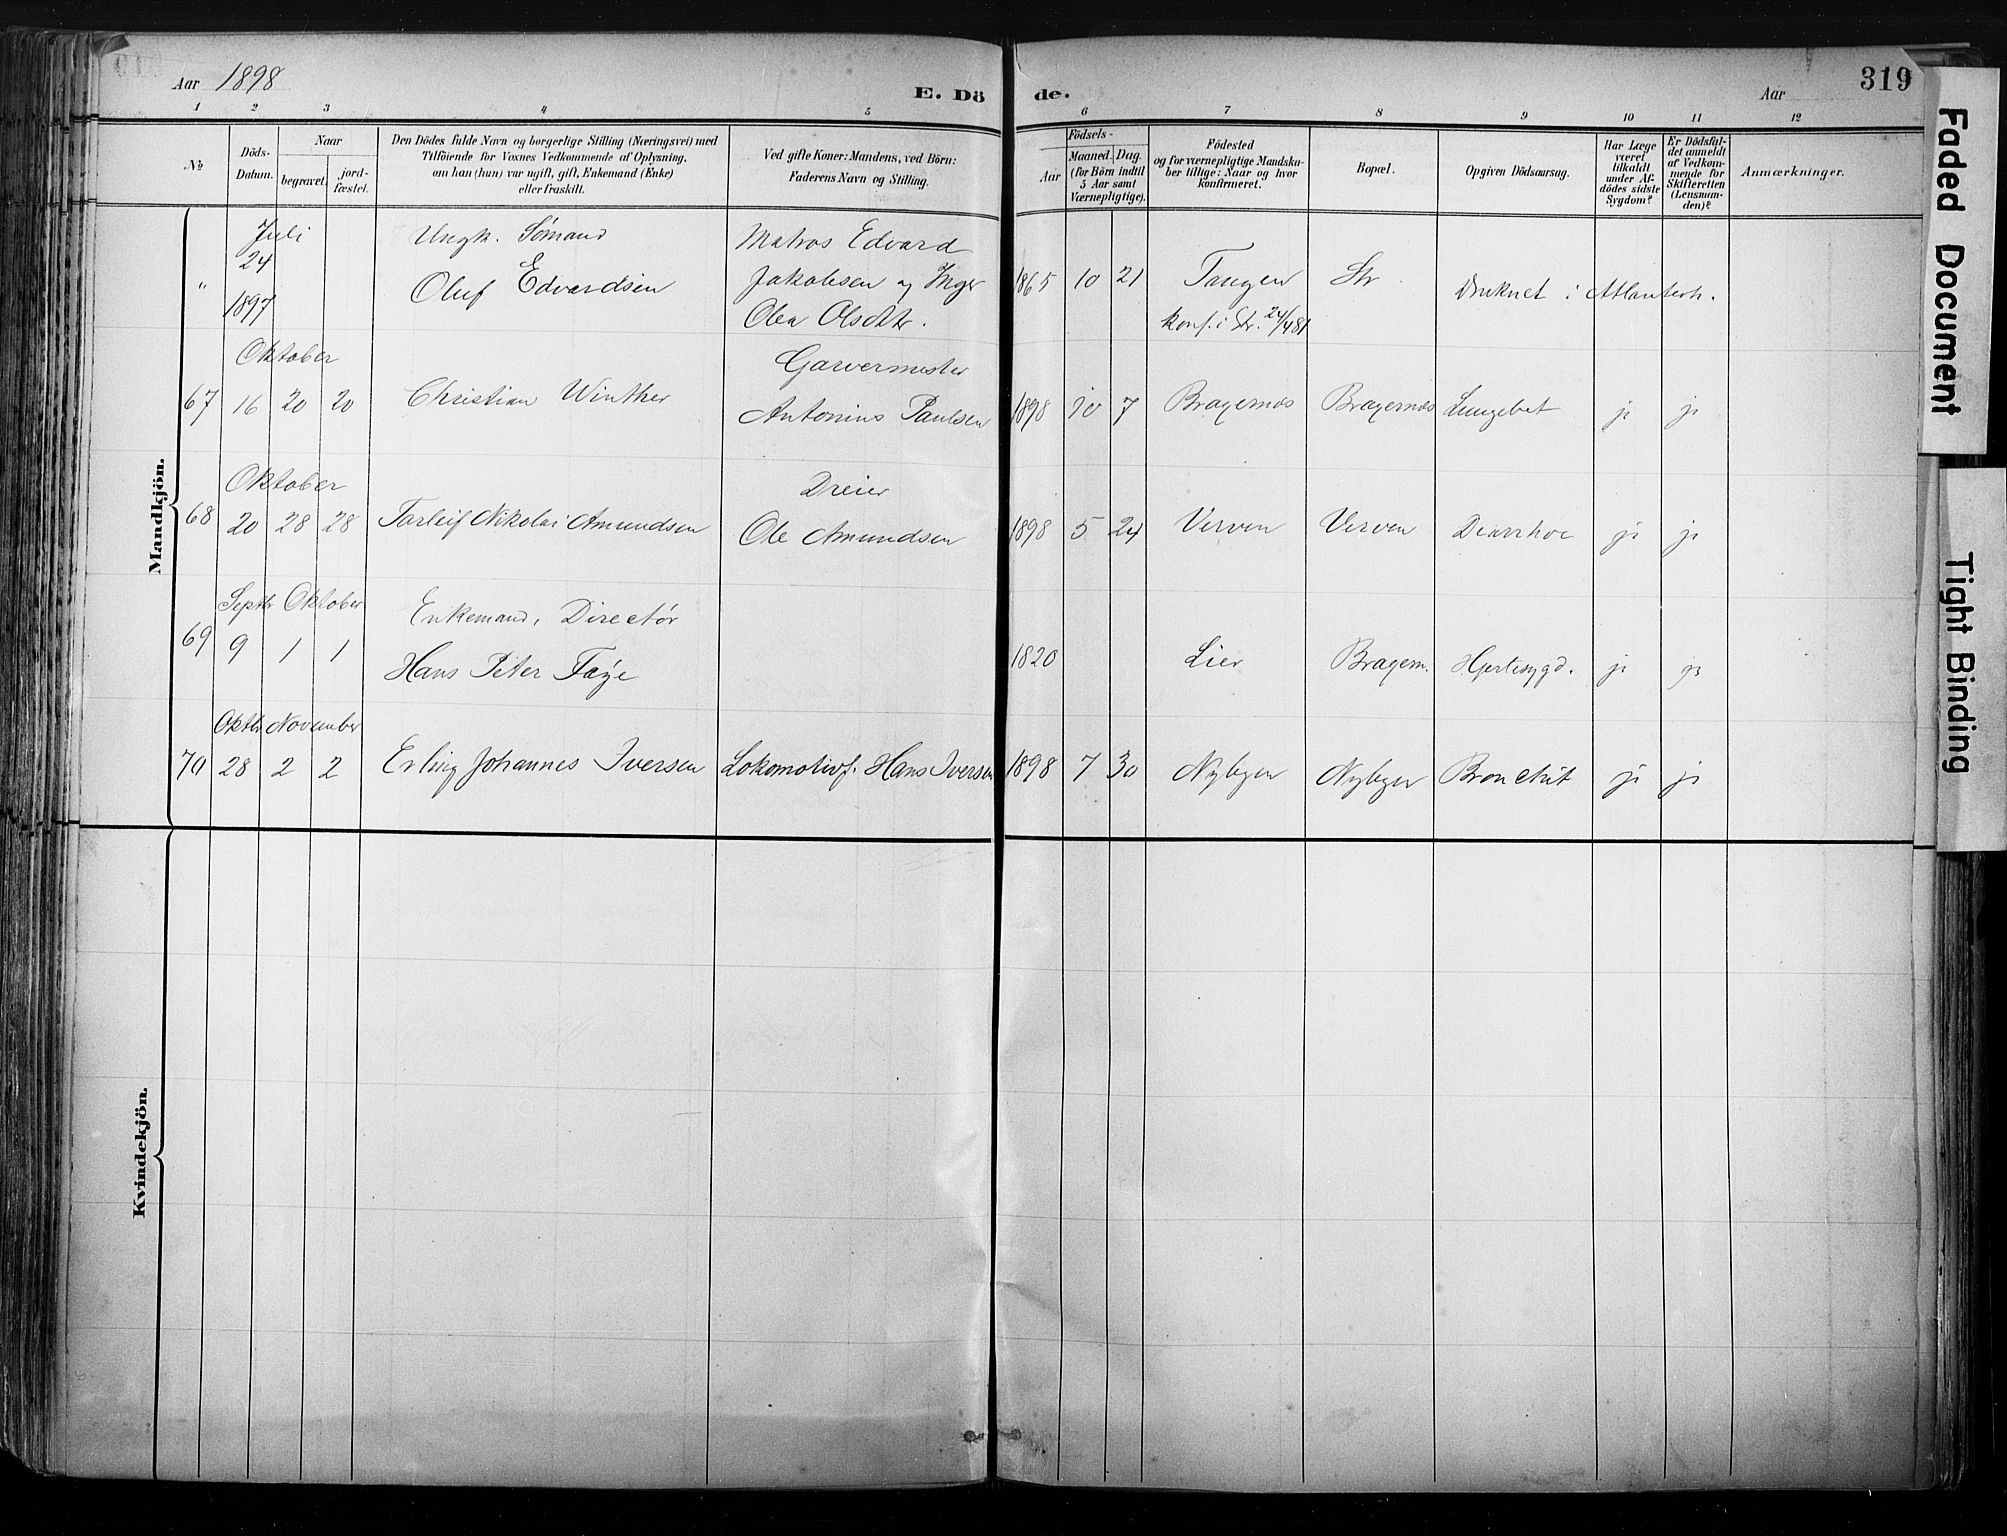 Aar 1898
E. Dö de.
Aar
319
1 2 3 4 5 6 7 8 9 10 11 12
№
Döds-
Datum.
Naar
begravet.
jord-
fæstet.
Den Dödes fulde Navn og borgerlige Stilling (Næringsvei) med
Tilföiende for Voxnes Vedkommende af Oplysning.
om han (hun) var ugift, gift, Enkemand (Enke)
eller fraskilt.
Ved gifte Koner: Mandens, ved Börn:
Faderens Navn og Stilling.
Födsels-
Aar
Maaned.
Dag.
(for Börn indtil
5 Aar samt
Værnepligtige).
Födested
og for værnepligtige Mandska-
ber tillige: Naar og hvor
konfirmeret.
Bopæl.
Opgiven Dödsaarsag.
Har Læge
været
tilkaldt
under Af-
dödes sidste
Sygdom?
Er Dödsfal-
det anmeldt
af Vedkom-
mende for
Skifteretten
(Lensman-
den)?
Anmærkninger.
Mandkjön.
Juli
24
1897
"
Ungk. Sømand
Oluf Edvardsen
Matros Edvard
Jakobsen og Inger
Olea Olsdtr.
1865 10 21
Tangen
konf. i Str. 24/4 81
Str
Druknet i Atlanterh.
Oktober
67 16 20 20
Christian Winther
Garvermester
Antonius Paulsen
1898 10 7 Bragernæs Bragernæs Lungebet ja ja
Oktober
68 20 28 28
Torleif Nikolai Amundsen
Dreier
Ole Amundsen
1898 5 24 Verven Verven Diarrhoe ja ja
Septbr Oktober
69 9 1 1
Enkemand, Directør
Hans Peter Faye
1820 Lier Bragern. Hjertesygd. ja ja
Oktbr November
70 28 2 2
Erling Johannes Iversen
Lokomotivf. Hans Iversen
1898 7 30 Nybyen Nybyen Bronchit ja ja
Kvindekjön.
Faded Document
Tight Binding